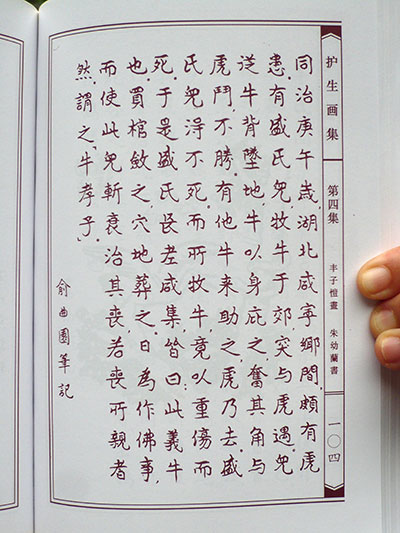 护生画集
第四集
丰子愷畫 朱幼蘭書
一〇四
同治庚午歲,湖北咸寧鄉間,頗有虎
患。有盛氏兒,牧牛于郊,突与虎遇。兒
從牛背墜地,牛以身庇之,奮其角与
虎鬥,不勝。有他牛来助之,虎乃去。盛
氏兒得不死。而所牧牛,竟以重傷而
死。于是盛氏長老咸集,皆曰:此義牛
也。買棺斂之,穴地葬之。日為作佛事,
而使此兒斬衰治其喪,若喪所親者
然。謂之「牛孝子」。
俞曲園筆記